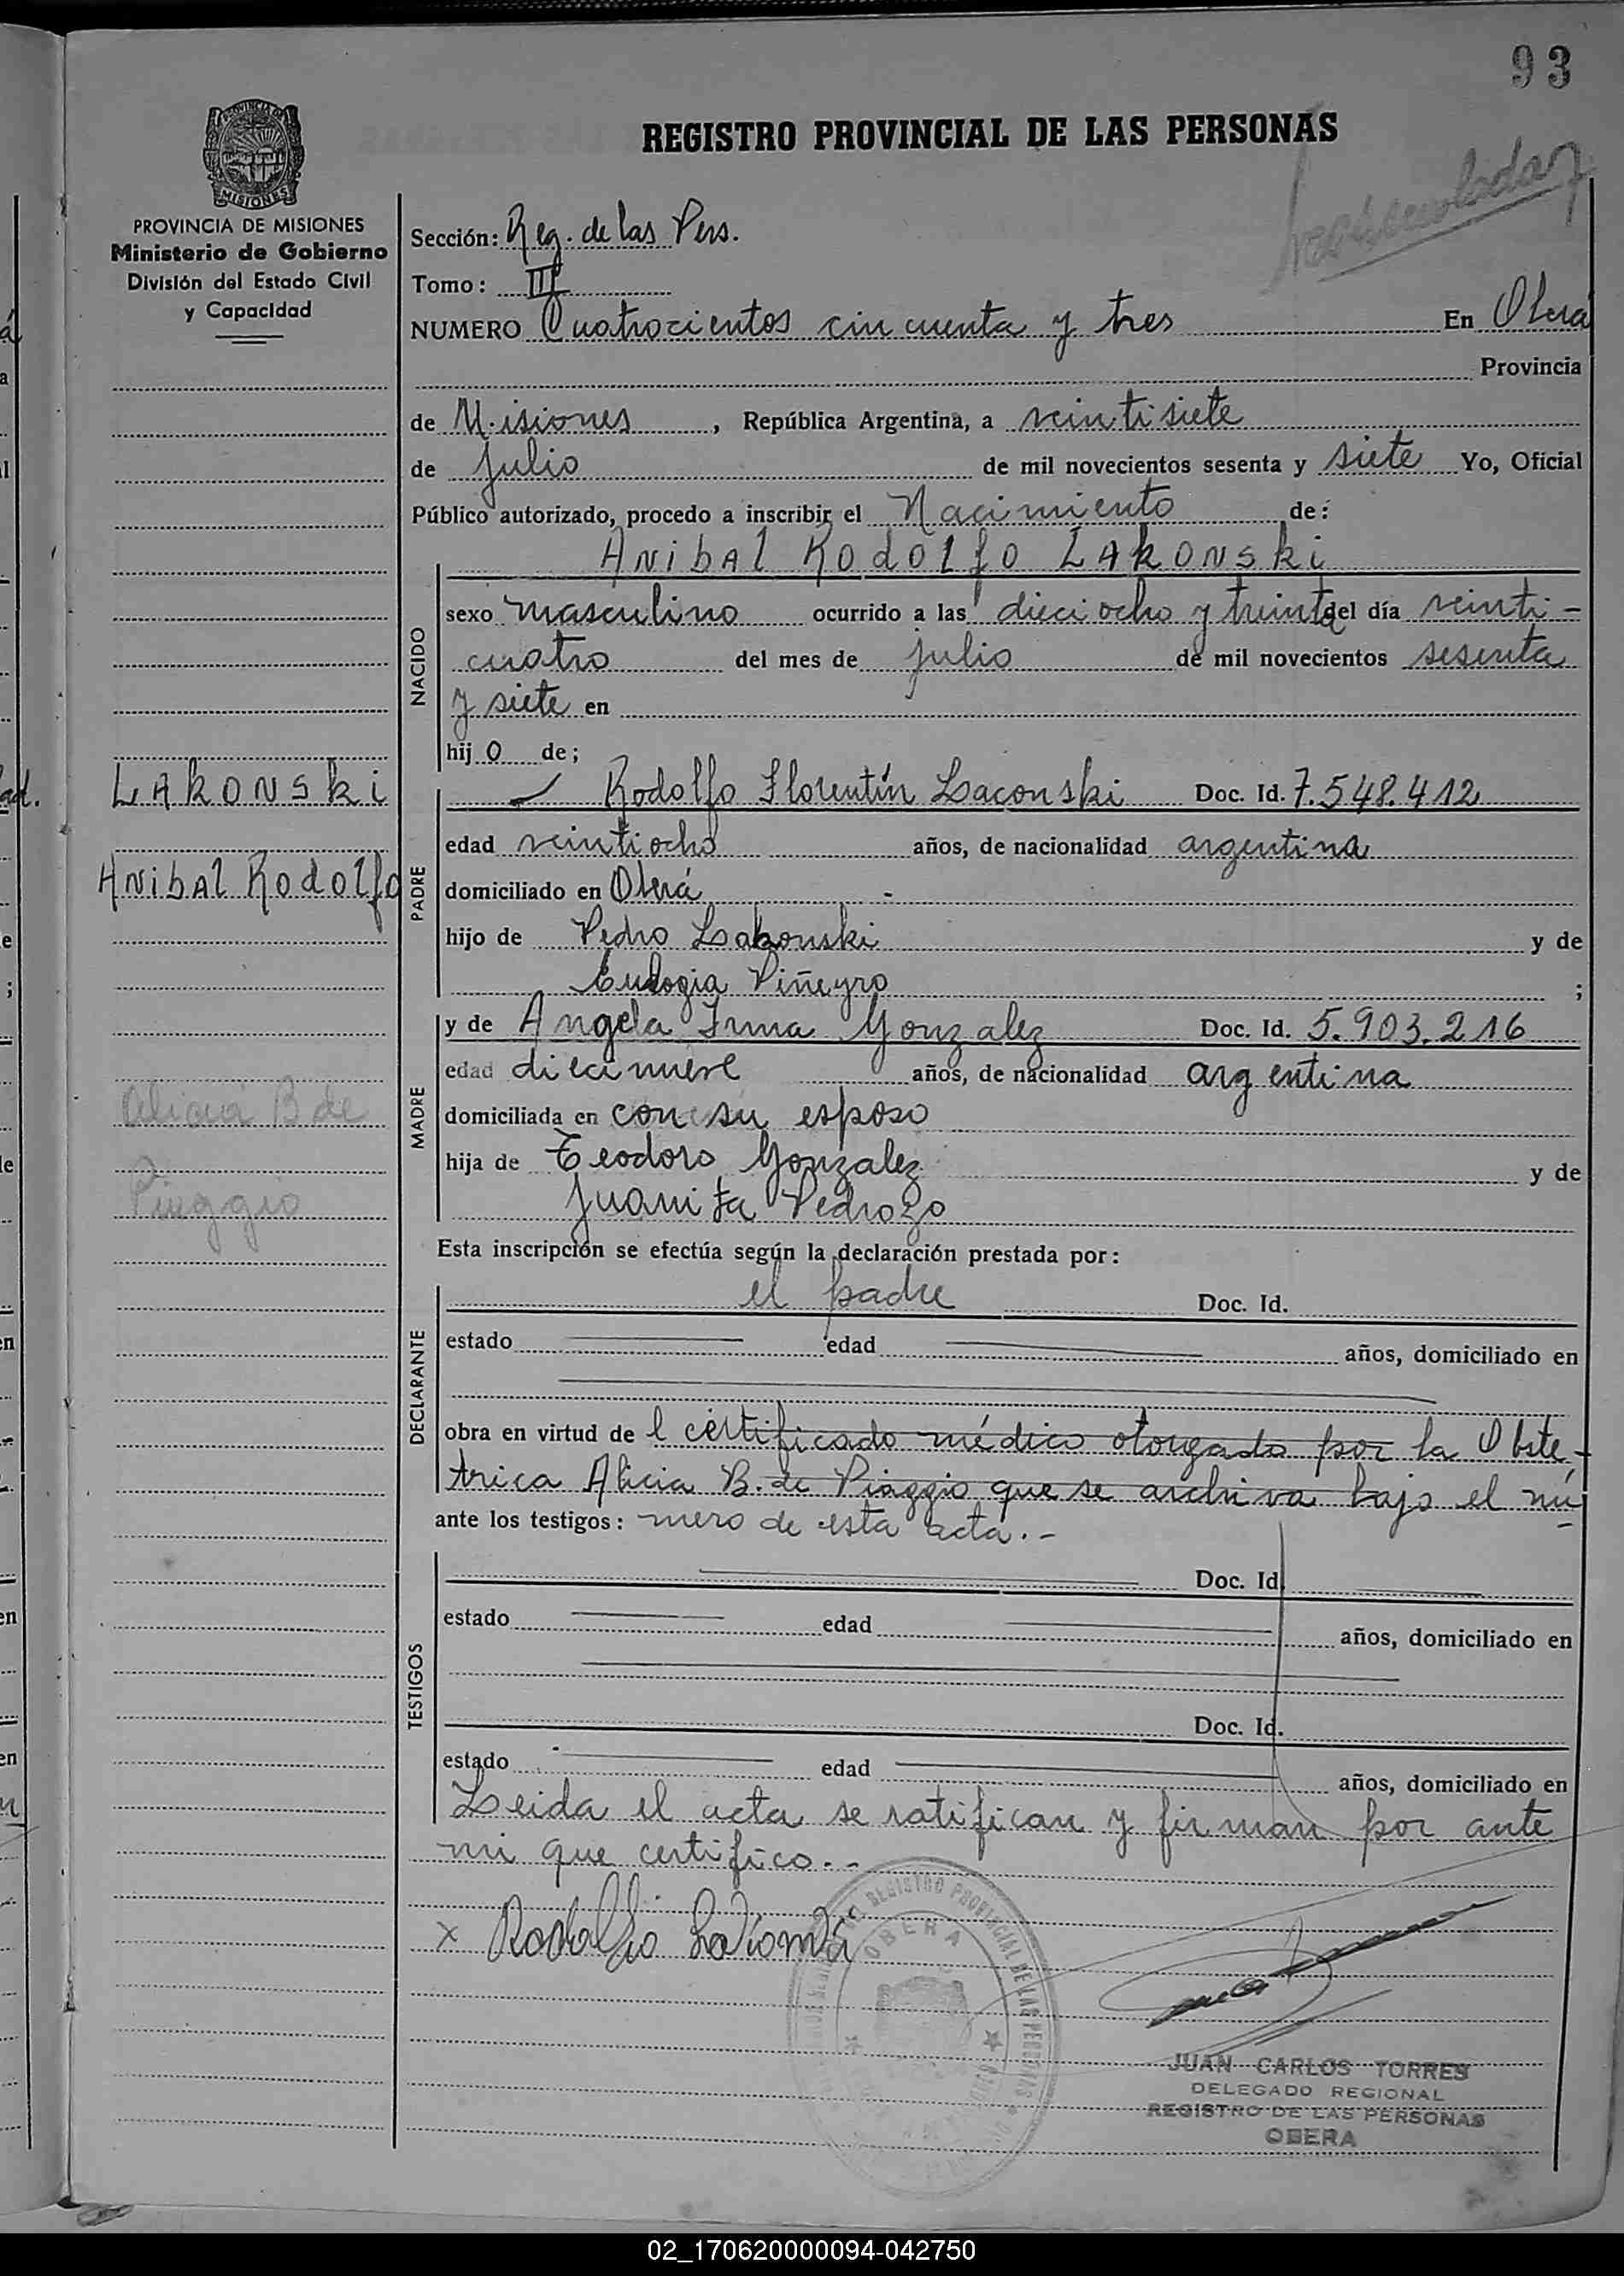 93
REGISTRO PROVINCIAL DE LAS PERSONAS
PROVINCIA DE MISIONES
Ministerio de Gobierno
División del Estado Civil
y Capacidad
Sección: Reg. de las Pers.
Tomo: III
NUMERO Cuatrocientos cincuenta y tres En Oberá
Provincia
de Misiones, República Argentina, a veintisiete
de julio de mil novecientos sesenta y siete Yo, Oficial
Público autorizado, procedo a inscribir el Nacimiento de:
Anibal Rodolfo Lakonski
NACIDO
sexo masculino ocurrido a las dieciocho y treinta del día veinti-
cuatro del mes de julio de mil novecientos sesenta
y siete en
hijo de;
Lakonski
Anibal Rodolfo
PADRE
Rodolfo Florentín Laconski Doc. Id. 7.548.412
edad veintiocho años, de nacionalidad argentina
domiciliado en Oberá
hijo de Pedro Lakonski y de
Eulogia Piñeyro ;
MADRE
y de Angela Irma Gonzalez Doc. Id. 5.903.216
edad diecinueve años, de nacionalidad argentina
domiciliada en con su esposo
hija de Teodoro Gonzalez y de
Juanita Pedrozo
Alicia B de
Piaggio
Esta inscripción se efectúa según la declaración prestada por:
DECLARANTE
el padre Doc. Id.
estado edad años, domiciliado en
obra en virtud de l certificado médico otorgado por la Obste-
trica Alicia B. de Piaggio que se archiva bajo el nú-
ante los testigos: mero de esta acta.-
TESTIGOS
Doc. Id.
estado edad años, domiciliado en
Doc. Id.
estado edad años, domiciliado en
Leida el acta se ratifican y firman por ante
mi que certifico.-
x Rodolfo
OBERA
REGISTRO PROVINCIAL DE LAS PERSONAS
JUAN CARLOS TORRES
DELEGADO REGIONAL
REGISTRO DE LAS PERSONAS
OBERA
02_170620000094-042750